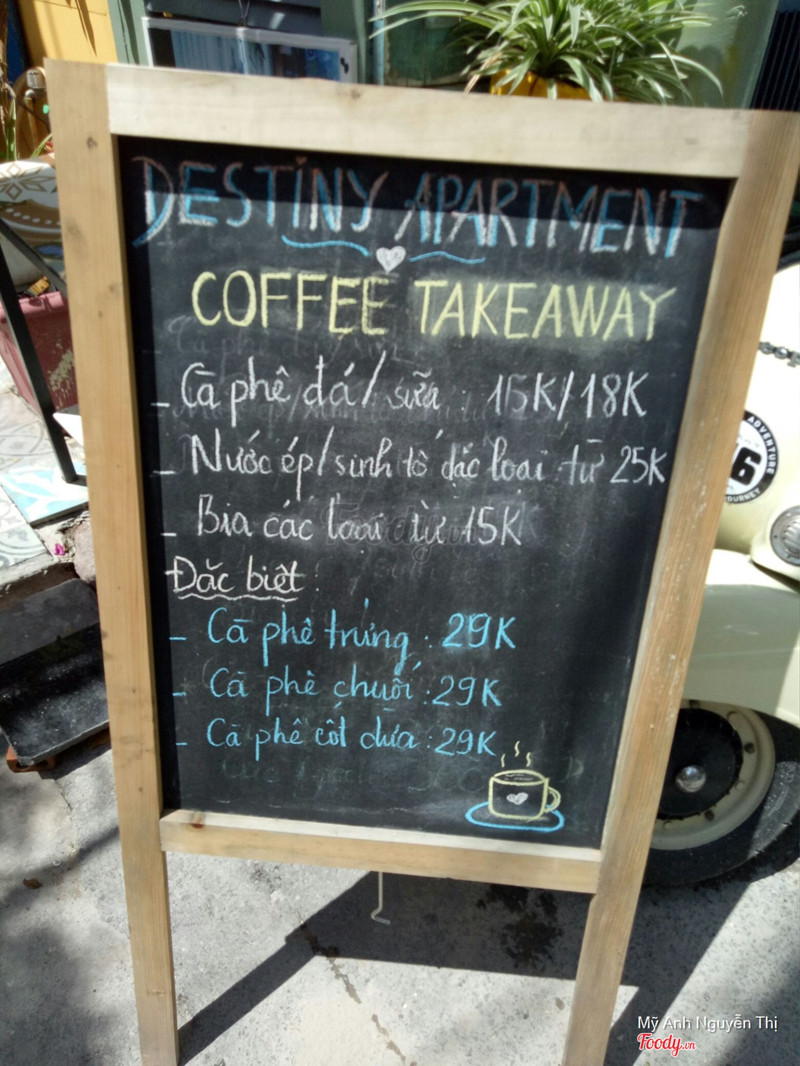 DESTINY APARTMENT
COFFEE TAKEAWAY
- Cà phê đá/sữa : 15K/18K
- Nước ép/sinh tố các loại từ 25K
- Bia các loại từ 15K
Đặc biệt :
- Cà phê trứng : 29K
- Cà phê chuối : 29K
- Cà phê cốt dừa : 29K
ADVENTURE
6
JOURNEY
Mỹ Anh Nguyễn Thị
Foody.vn